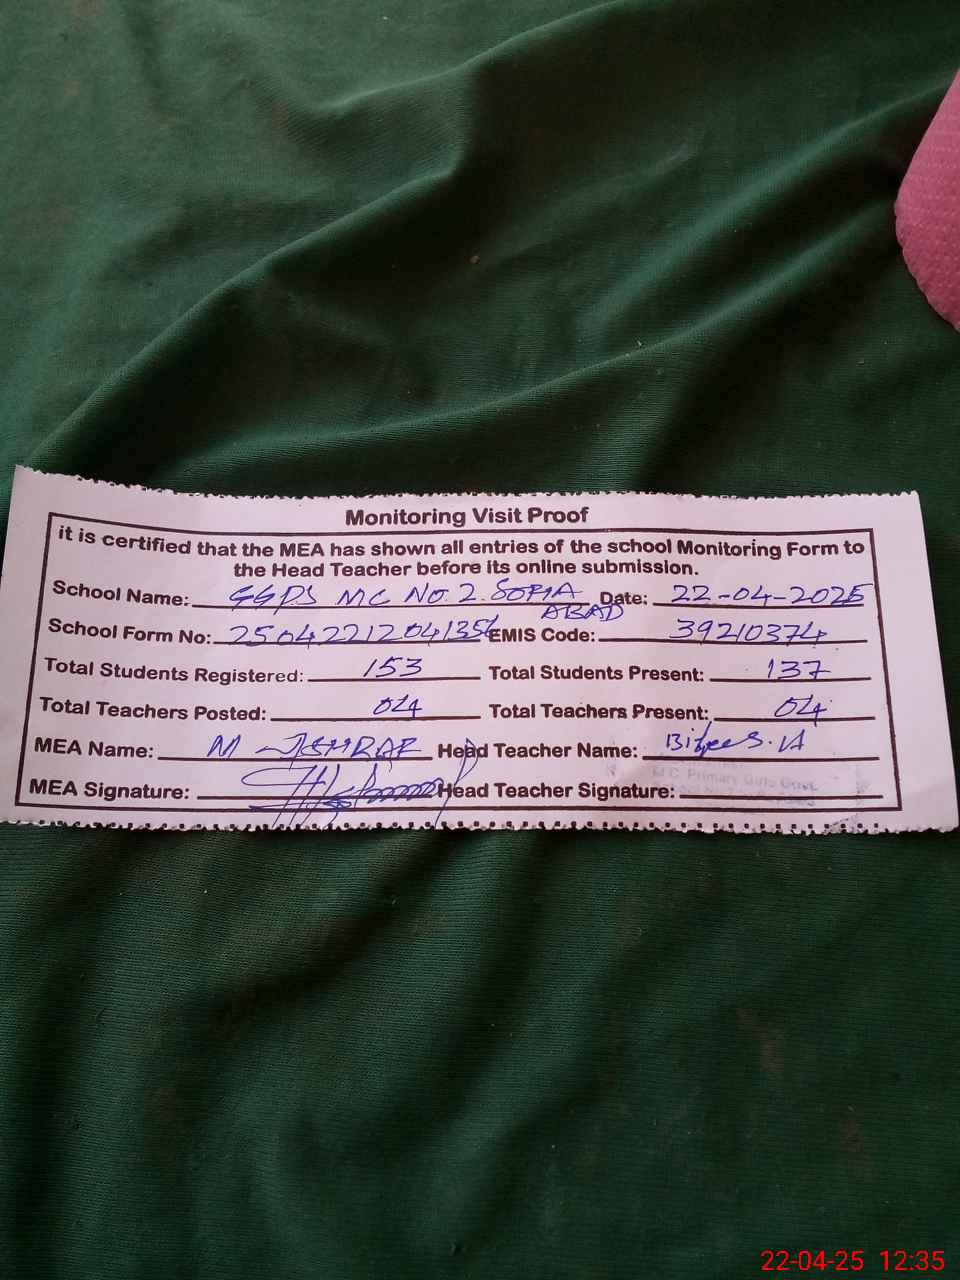 Monitoring Visit Proof
it is certified that the MEA has shown all entries of the school Monitoring Form to
the Head Teacher before its online submission.
School Name: GGPS MC No. 2. SOFIA ABAD Date: 22-04-2025
School Form No: EMIS Code: 39210374
Total Students Registered: 153 Total Students Present: 137
Total Teachers Posted: 04 Total Teachers Present: 04
MEA Name: M Head Teacher Name:
MEA Signature: Head Teacher Signature:
M.C. Primary Girls
22-04-25 12:35